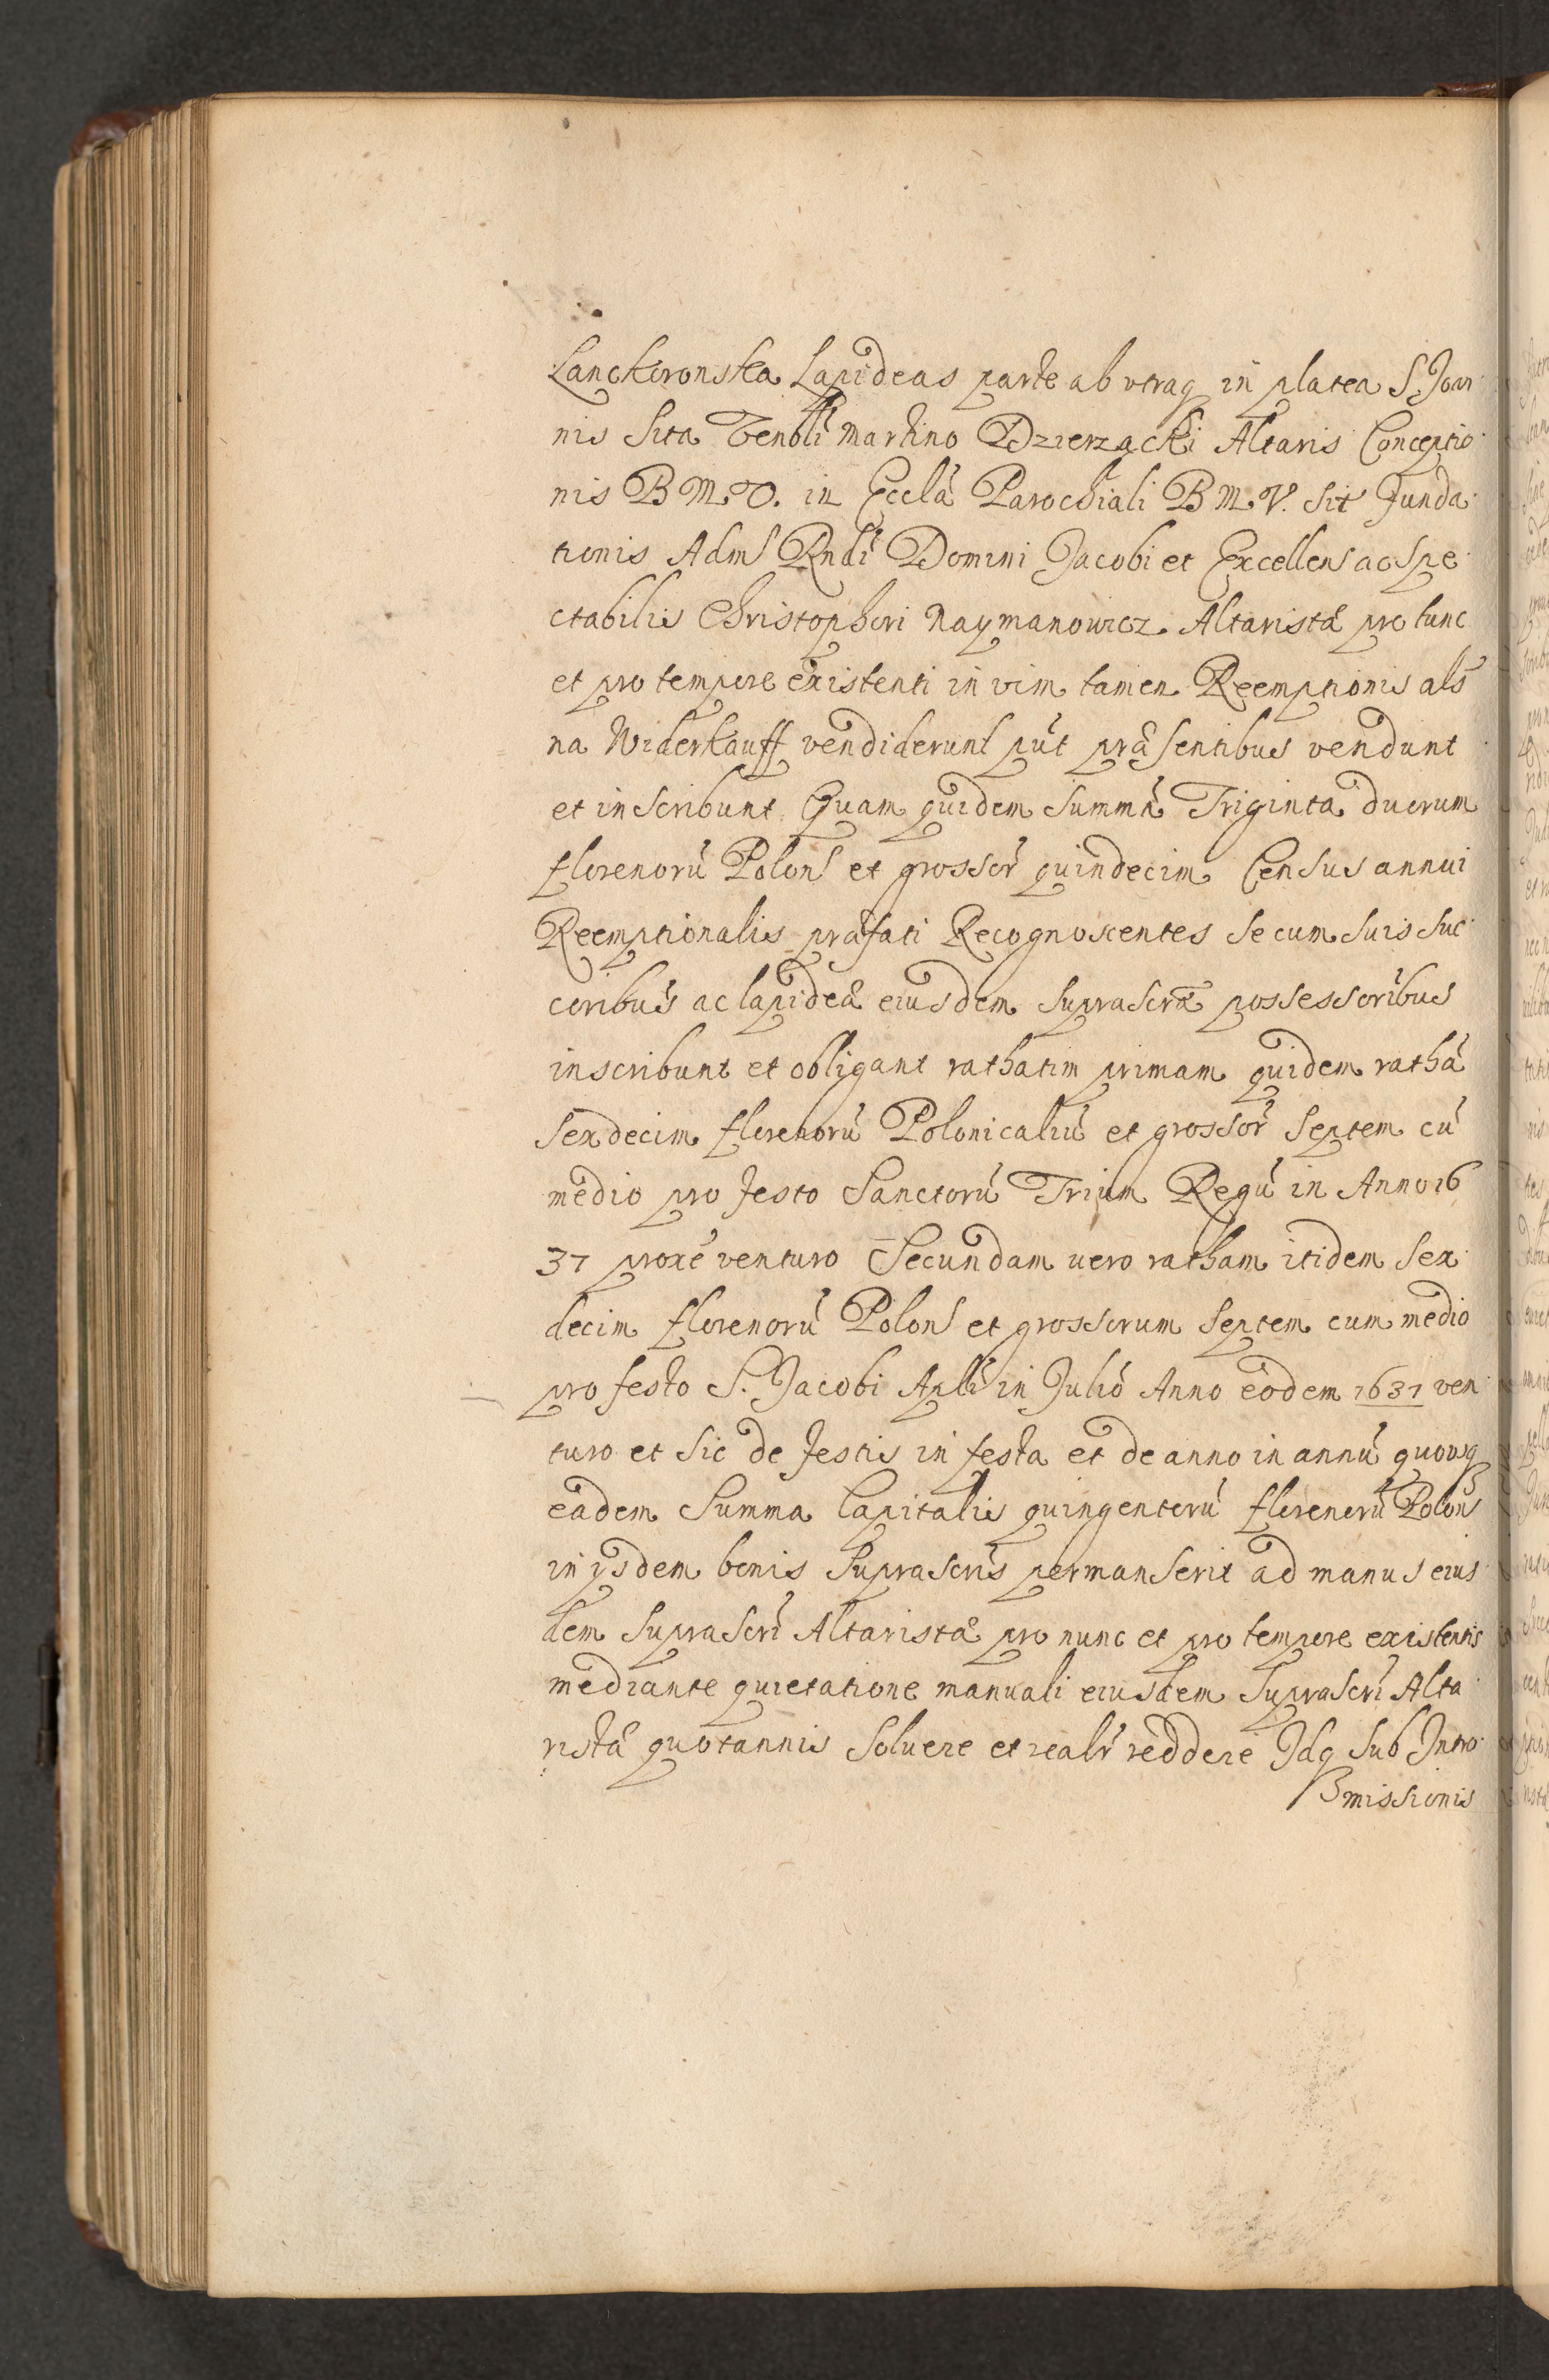 Lanckoronska Lapideas parte ab vtraq in platea S. Joan
nis sita Venbli Martino Dzierzacki Altaris Conceptio
nis B M V. in Eccla Parochiali B M V. sit Funda
tionis Adms Rndi Domini Jacobi et Excellens ac Spe
ctabilis Christophori Naymanowicz Altaristæ pro tunc
et pro tempore existenti in vim tamen Reemptionis als
na Widerkauff vendiderunt put præsentibus vendunt
et inscribunt Quam quidem summā Triginta duorum
florenorū Polons et grossor quindecim Census annui
Reemptionalis præfati Recognoscentes se cum suis suc
coribus ac lapideæ eiusdem suprascræ possessoribus
inscribunt et obligant rathatim primam quidem rathā
sexdecim florenorū Polonicaliū et grossor septem cū
medio pro festo Sanctorū Trium Regū in Anno 16
37 proxe venturo Secundam vero ratham itidem sex
decim florenorū Polons et grossorum septem cum medio
pro festo S. Jacobi Apli in Julio Anno eodem 1637 ven
turo et sic de festis in festa et de anno in annū quousq
eadem Summa Capitalis quingentorū florenorū Polons
in ysdem bonis suprascris permanserit ad manus eius
dem suprascri Altaristæ pro nunc et pro tempore existentis
mediante quietatione manuali eiusdem suprascri Alta
ristæ quotannis soluere et realr reddere Idq sub Intro
missionis